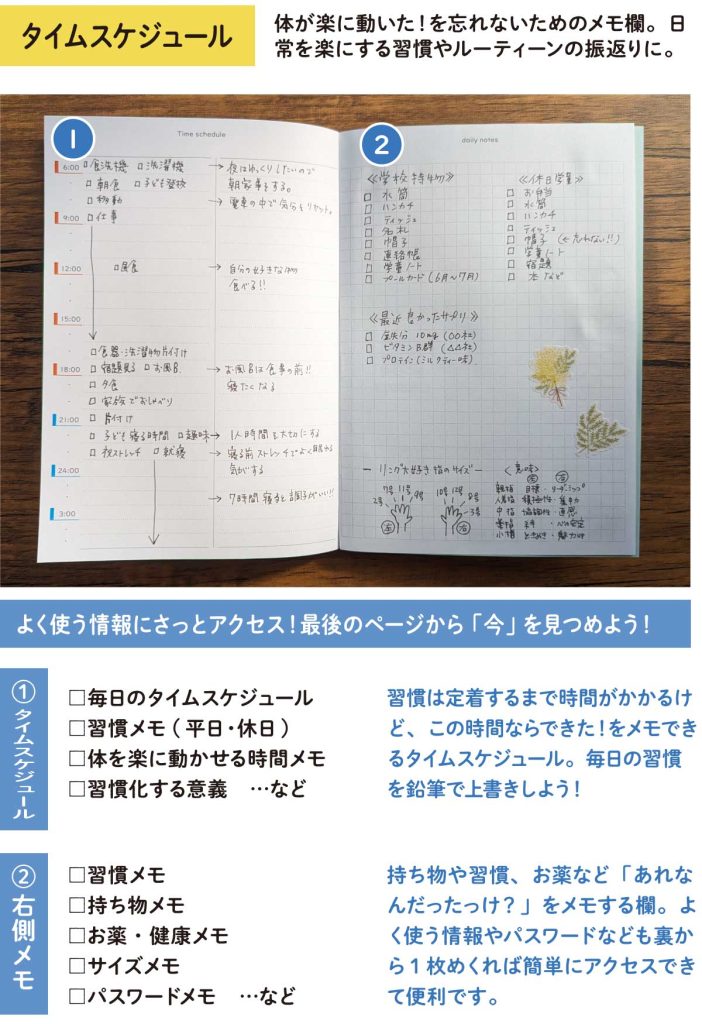 タイムスケジュール
体が楽に動いた！を忘れないためのメモ欄。日
常を楽にする習慣やルーティーンの振返りに。
1
Time schedule
6:00
□食洗機 □洗濯機 → 夜はゆっくりしたいので
□朝食 □子ども登校 朝家事をする。
□移動 → 電車の中で気分をリセット。
9:00
□仕事
12:00
□昼食 → 自分の好きな物
食べる!!
15:00
□食器・洗濯物片付け
18:00
□宿題見る □お風呂 → お風呂は食事の前!!
□夕食 寝たくなる
□家族でおしゃべり
21:00
□片付け
□子ども寝る時間 □趣味 → 1人時間を大切にする
□夜ストレッチ □就寝 → 寝る前ストレッチでよく眠れる
24:00
気がする
→ 7時間寝ると調子がいい!!
3:00
2
daily notes
≪学校持ち物≫
□ 水筒
□ ハンカチ
□ ティッシュ
□ 名札
□ 帽子
□ 連絡帳
□ 学童ノート
□ プールカード(6月～7月)
≪休日学童≫
□ お弁当
□ 水筒
□ ハンカチ
□ ティッシュ
□ 帽子 (←忘れない!!)
□ 学童ノート
□ 宿題
□ 本など
≪最近良かったサプリ≫
□ 鉄分 10mg (○○社)
□ ビタミンB群 (△△社)
□ プロテイン(ミルクティー味)
― リング大好き 指のサイズ ―
2号 7号 11号 9号 10号 12号 8号 3号
左 右
<意味>
左 右
親指 目標・リーダーシップ
人差指 積極性・集中力
中指 協調性・直感
薬指 ・心の安定
小指 ときめき・魅力UP
よく使う情報にさっとアクセス！最後のページから「今」を見つめよう！
①タイムスケジュール
□毎日のタイムスケジュール
□習慣メモ（平日・休日）
□体を楽に動かせる時間メモ
□習慣化する意義 …など
習慣は定着するまで時間がかかるけ
ど、この時間ならできた！をメモでき
るタイムスケジュール。毎日の習慣
を鉛筆で上書きしよう！
②右側メモ
□習慣メモ
□持ち物メモ
□お薬・健康メモ
□サイズメモ
□パスワードメモ …など
持ち物や習慣、お薬など「あれな
んだったっけ？」をメモする欄。よ
く使う情報やパスワードなども裏か
ら１枚めくれば簡単にアクセスでき
て便利です。